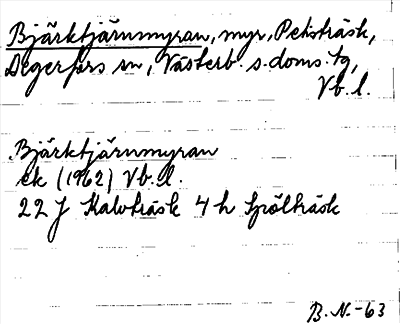 Bjärktjärnmyran, myr, Peksträsk,
Degerfors sn, Västerb. s. doms. tg,
Vb. l.
Bjärktjärnmyran
ek (1962) Vb. l.
22 J Kalvträsk 4 h Spölträsk
B. N. -63